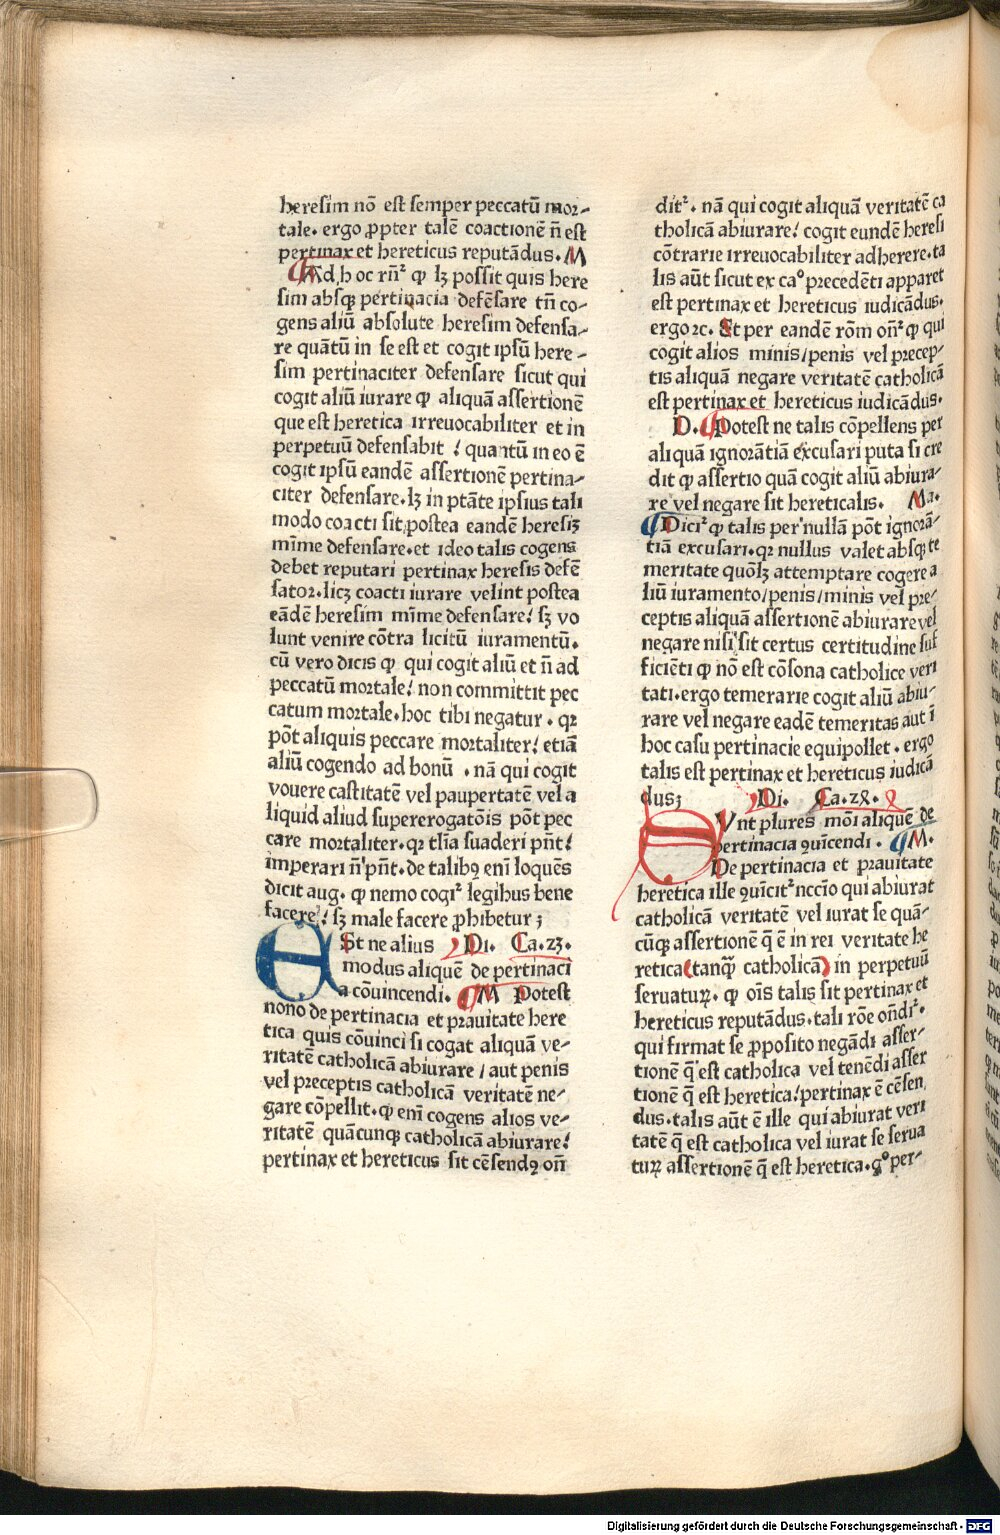 heresim nō est semper peccatū mor-
tale. ergo ꝓpter talē coactionē n̄ est
pertinax et hereticus reputādus. M
Ad hoc rn̄² ꝙ lꝫ possit quis here
sim absqꝫ pertinacia defēsare tn̄ co-
gens aliū absolute heresim defensa-
re quātū in se est et cogit ipsū here-
sim pertinaciter defensare sicut qui
cogit aliū iurare ꝙ aliquā assertionē
que est heretica irreuocabiliter et in
perpetuū defensabit / quātū in eo ē
cogit ipsū eandē assertionē pertina-
citer defensare. lꝫ in ptāte ipsius tali
modo coacti sit postea eandē heresiꝫ
mīme defensare. et ideo talis cogens
debet reputari pertinax heresis defē
sator. licꝫ coacti iurare velint postea
eādē heresim mīme defensare / sꝫ vo
lunt venire cōtra licitū iuramentū.
cū vero dicis ꝙ qui cogit aliū et n̄ ad
peccatū mortale / non committit pec
catum mortale. hoc tibi negatur. qꝛ
pōt aliquis peccare mortaliter / etiā
aliū cogendo ad bonū . nā qui cogit
vouere castitatē vel paupertatē vel a
liquid aliud supererogatōis pōt pec
care mortaliter. qꝛ tlīa suaderi pn̄t /
imperari n̄ pn̄t. de talibꝰ enī loquēs
dicit aug. ꝙ nemo cogi² legibus bene
facere / sꝫ male facere ꝓhibetur ;
ESt ne alius Di. Ca. 23.
modus aliquē de pertinaci
a cōuincendi. M Potest
nono de pertinacia et prauitate here
tica quis cōuinci si cogat aliquā ve-
ritatē catholicā abiurare / aut penis
vel preceptis catholicā veritatē ne-
gare cōpellit. ꝙ enī cogens alios ve-
ritatē quācunqꝫ catholicā abiurare /
pertinax et hereticus sit cēsendꝰ on̄
dit². nā qui cogit aliquā veritatē ca
tholicā abiurare / cogit eundē heresi
cōtrarie irreuocabiliter adherere. ta
lis aūt sicut ex ca° precedēti apparet
est pertinax et hereticus iudicādus.
ergo ⁊c. Et per eandē rōm on̄² ꝙ qui
cogit alios minis / penis vel precep-
tis aliquā negare veritatē catholicā
est pertinax et hereticus iudicādus.
D. Potest ne talis cōpellens per
aliquā ignorātiā excusari puta si cre
dit ꝙ assertio quā cogit aliū abiura-
re vel negare sit hereticalis. Ma.
Dici² ꝙ talis per nullā pōt ignorā-
tiā excusari. qꝛ nullus valet absqꝫ te
meritate quōlꝫ attemptare cogere a
liū iuramento / penis / minis vel pre-
ceptis aliquā assertionē abiurare vel
negare nisi sit certus certitudine suf
ficiēti ꝙ nō est cōsona catholice veri
tati. ergo temerarie cogit aliū abiu-
rare vel negare eadē temeritas aut ī
hoc casu pertinacie equipollet . ergo
talis est pertinax et hereticus iudicā
dus; Di. Ca. 24.
SVnt plures mōi aliquē de
pertinacia ꝯuīcendi . M.
De pertinacia et prauitate
heretica ille ꝯuīcit² nccīo qui abiurat
catholicā veritatē vel iurat se quā-
cūqꝫ assertionē q̄ ē in rei veritate he
retica (tanq̄ꝫ catholicā) in perpetuū
seruaturꝫ. ꝙ oīs talis sit pertinax et
hereticus reputādus. tali rōe on̄di².
qui firmat se ꝓposito negādi asser-
tionē q̄ est catholica vel tenēdi asser
tionē q̄ est heretica / pertinax ē cēsen
dus. talis aūt ē ille qui abiurat veri
tatē q̄ est catholica vel iurat se serua
turꝫ assertionē q̄ est heretica. g° per-
Digitalisierung gefördert durch die Deutsche Forschungsgemeinschaft - DFG